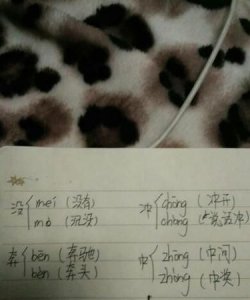 没 méi (没有) 冲 chōng (冲开)
mò (沉没) chòng (说话冲)
奔 bēn (奔驰) 中 zhōng (中间)
bèn (奔头) zhòng (中奖)